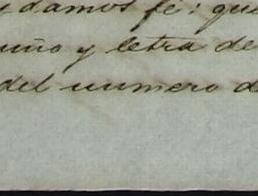 y damos fe: que
uño y letra de
del numero d